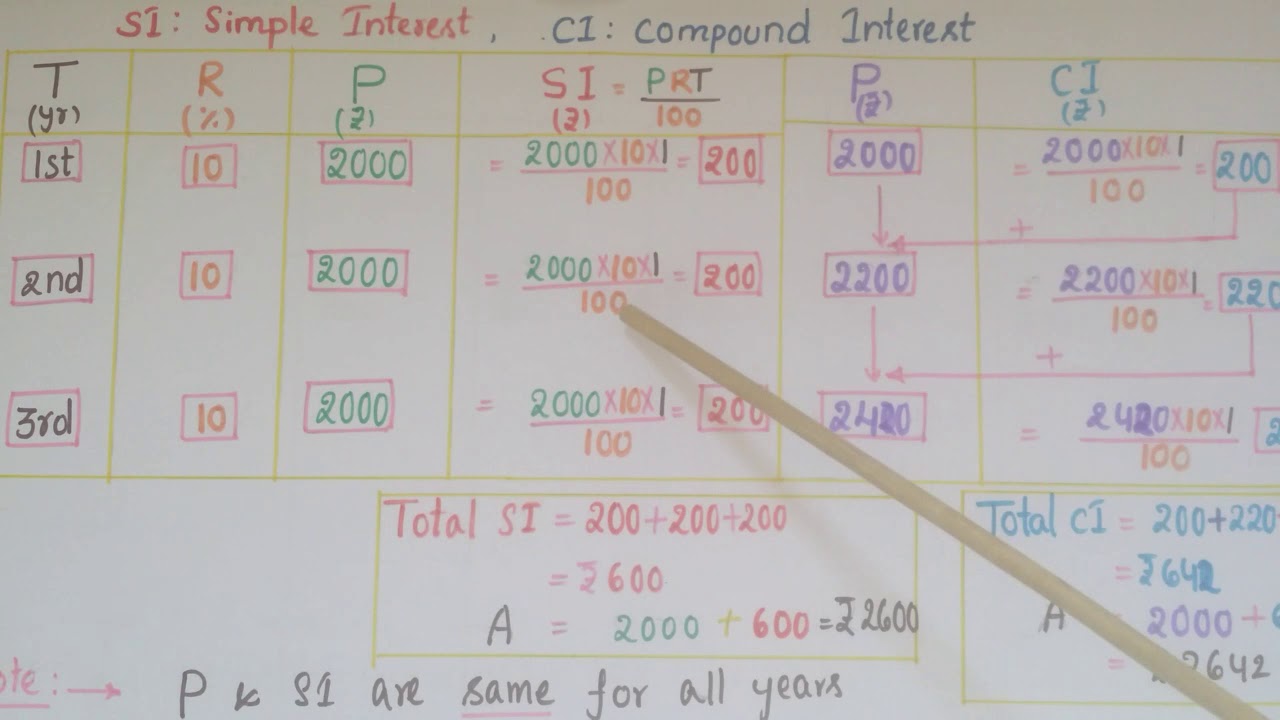 SI: Simple Interest, CI: Compound Interest
T R P SI = PRT/100 P CI
(yr) (%) (₹) (₹) (₹) (₹)
1st 10 2000 = 2000×10×1/100 = 200 2000 = 2000×10×1/100 = 200
+
2nd 10 2000 = 2000×10×1/100 = 200 2200 = 2200×10×1/100 = 220
+
3rd 10 2000 = 2000×10×1/100 = 200 2420 = 2420×10×1/100
Total SI = 200+200+200 Total CI = 200+220
= ₹600 = ₹642
A = 2000 + 600 = ₹2600 A = 2000 +
= 2642
P & SI are same for all years